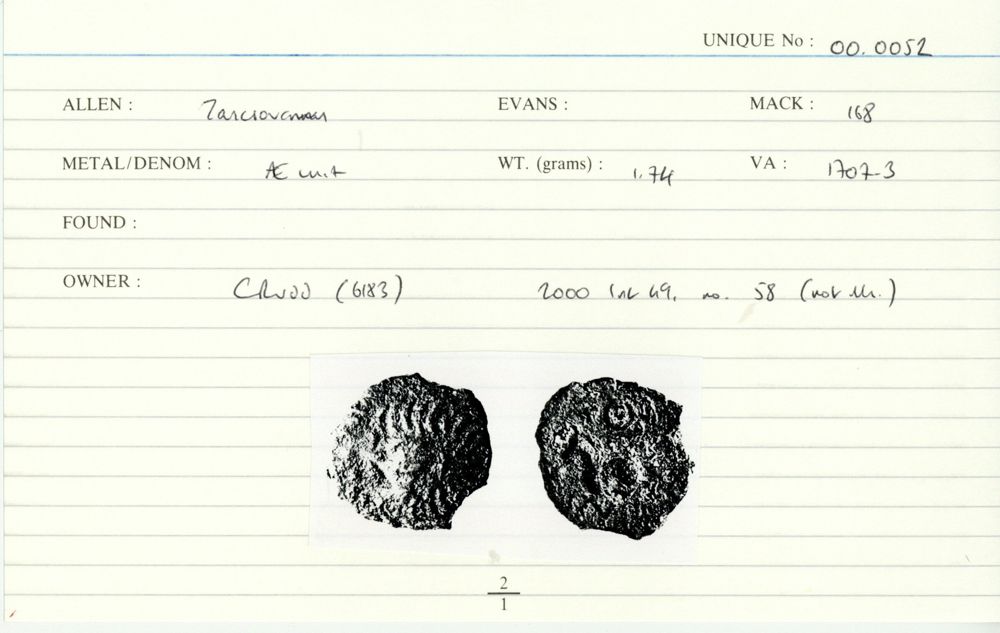 UNIQUE No : 00.0052
ALLEN : Tasciovanus EVANS : MACK : 168
METAL/DENOM : Æ unit WT. (grams) : 1.74 VA : 1707-3
FOUND :
OWNER : CRUDD (6183) 2000 no. 58 (not ill.)
2
1